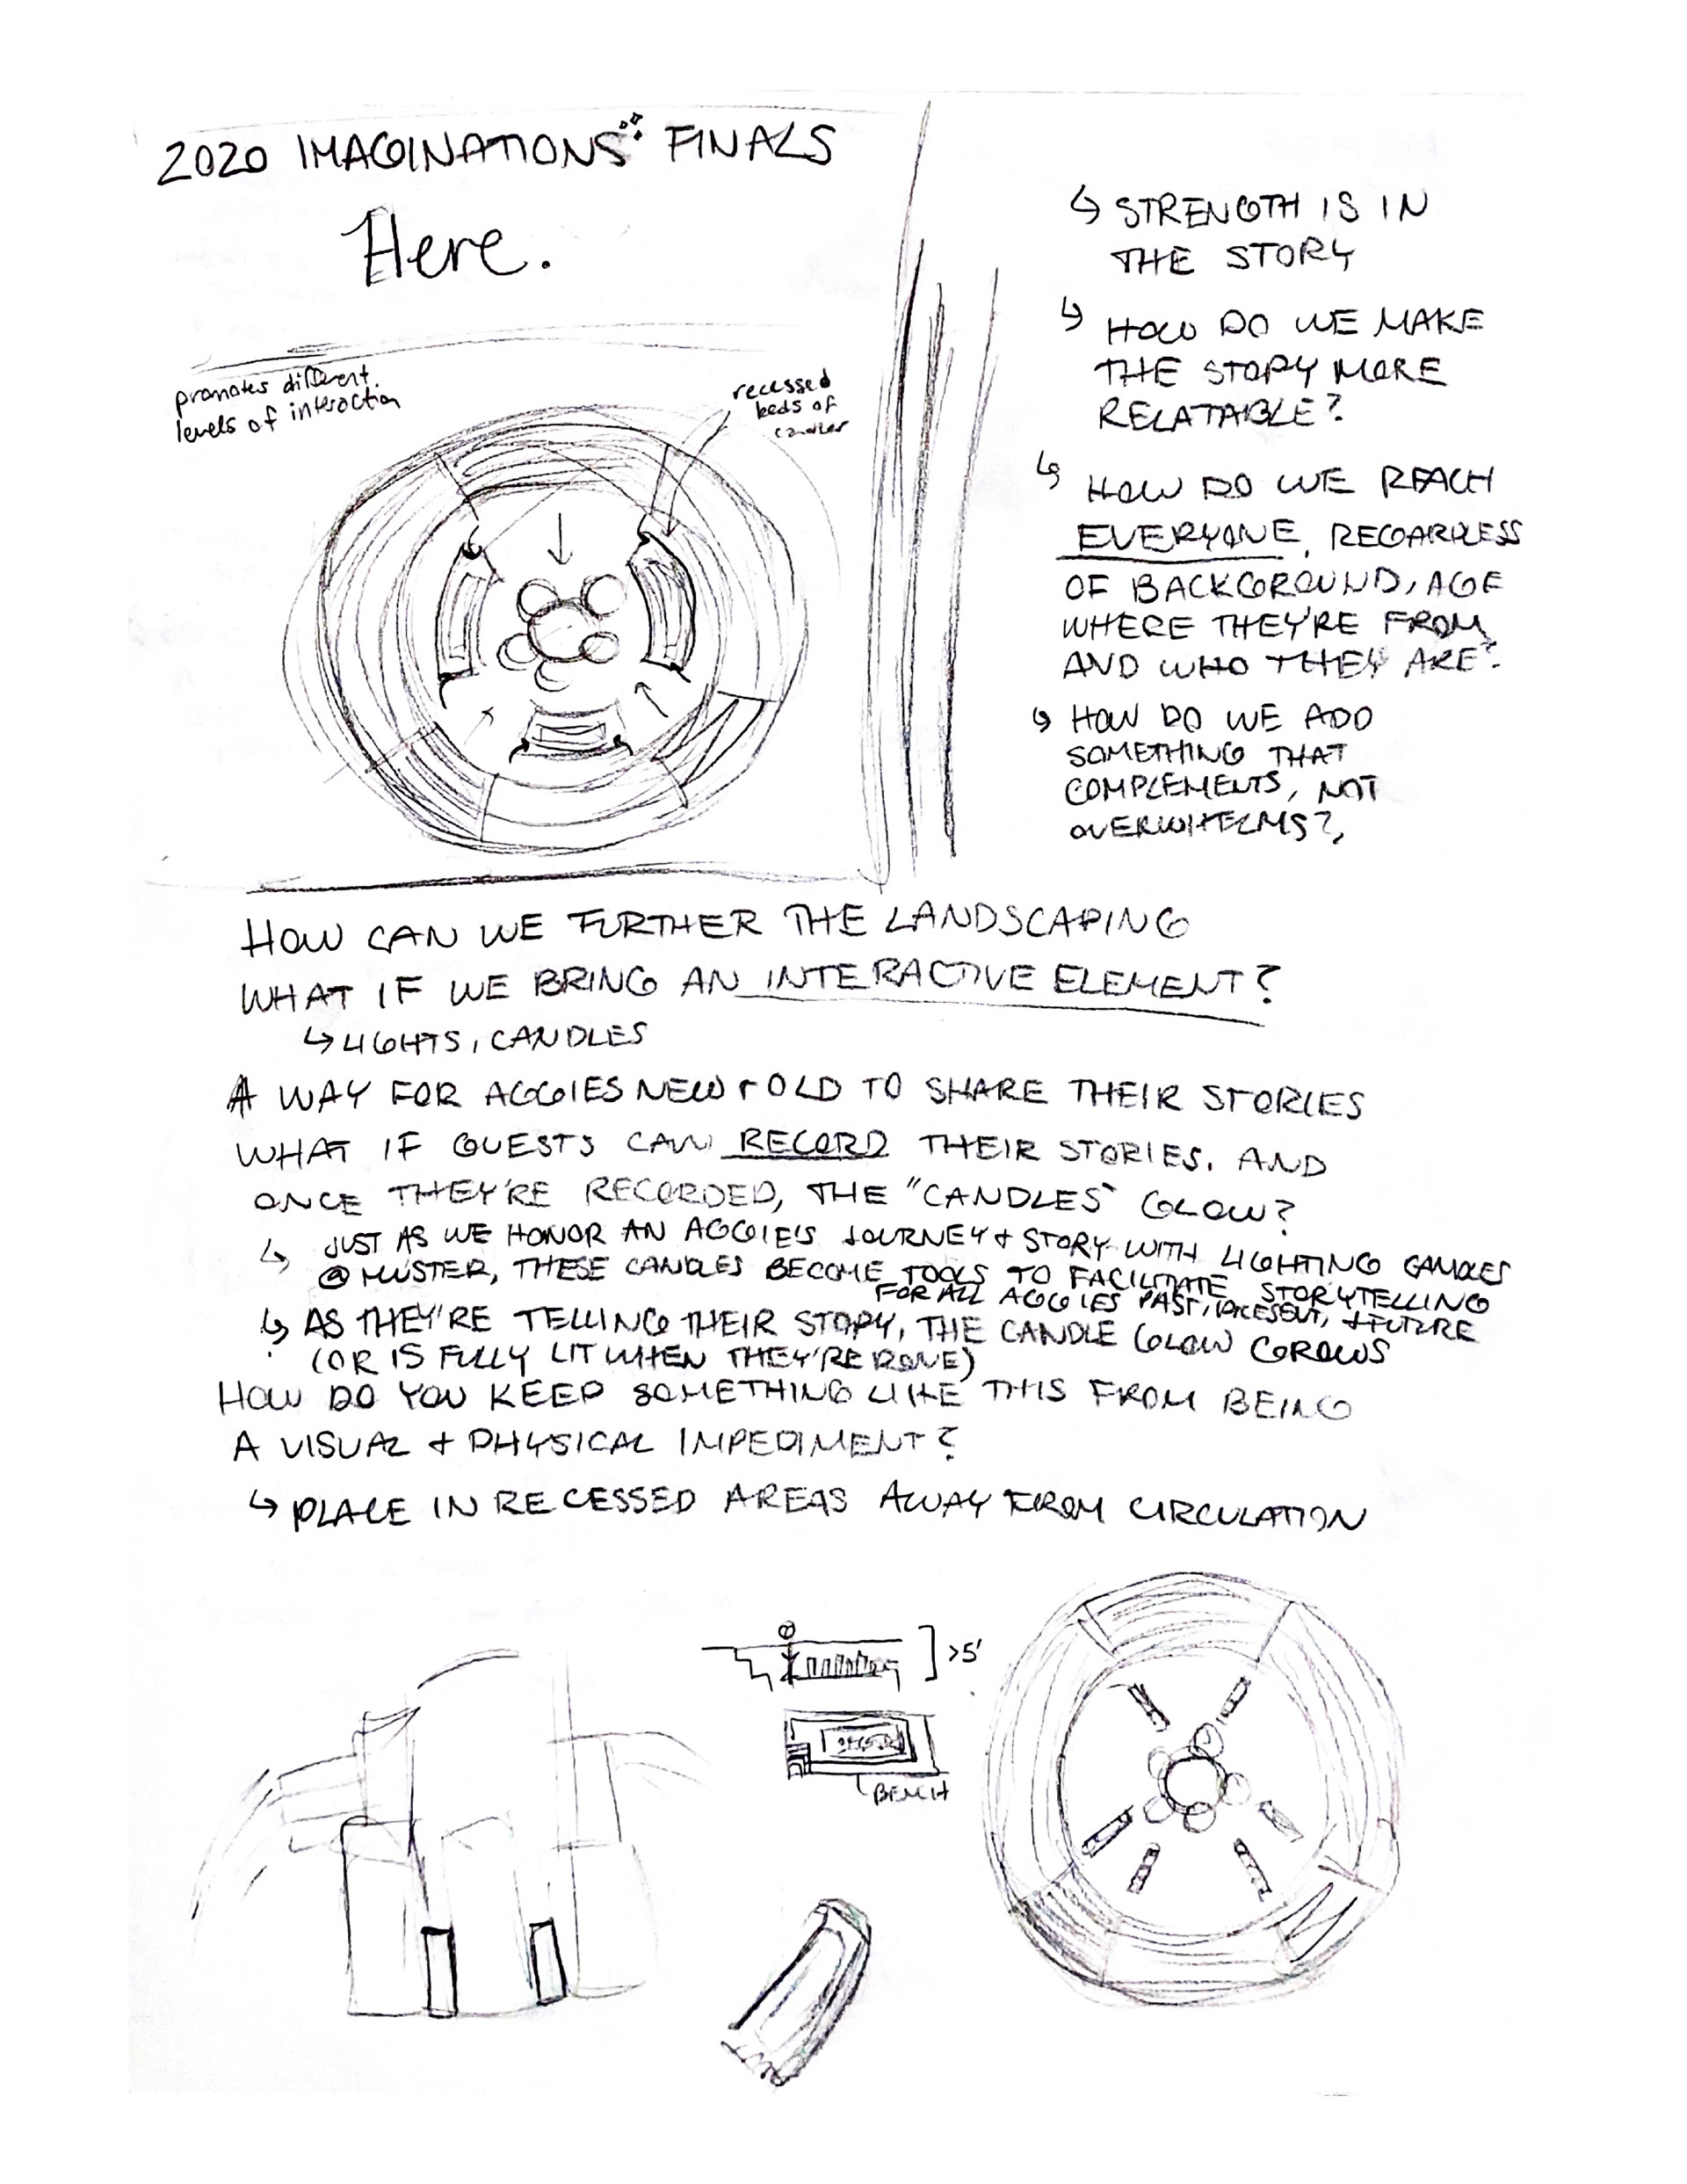 2020 IMAGINATIONS FINALS
Here.
promotes different
levels of interaction
recessed
beds of
candles
↳ STRENGTH IS IN
THE STORY
↳ HOW DO WE MAKE
THE STORY MORE
RELATABLE?
↳ HOW DO WE REACH
EVERYONE, REGARDLESS
OF BACKGROUND, AGE
WHERE THEY'RE FROM
AND WHO THEY ARE?
↳ HOW DO WE ADD
SOMETHING THAT
COMPLEMENTS, NOT
OVERWHELMS?,
HOW CAN WE FURTHER THE LANDSCAPING
WHAT IF WE BRING AN INTERACTIVE ELEMENT?
↳ LIGHTS, CANDLES
A WAY FOR AGGIES NEW + OLD TO SHARE THEIR STORIES
WHAT IF GUESTS CAN RECORD THEIR STORIES. AND
ONCE THEY'RE RECORDED, THE "CANDLES" GLOW?
↳ JUST AS WE HONOR AN AGGIE'S JOURNEY + STORY WITH LIGHTING CANDLES
@ MUSTER, THESE CANDLES BECOME TOOLS TO FACILITATE STORYTELLING
FOR ALL AGGIES PAST, PRESENT, + FUTURE
↳ AS THEY'RE TELLING THEIR STORY, THE CANDLE GLOW GROWS
(OR IS FULLY LIT WHEN THEY'RE DONE)
HOW DO YOU KEEP SOMETHING LIKE THIS FROM BEING
A VISUAL + PHYSICAL IMPEDIMENT?
↳ PLACE IN RECESSED AREAS AWAY FROM CIRCULATION
>5'
BENCH